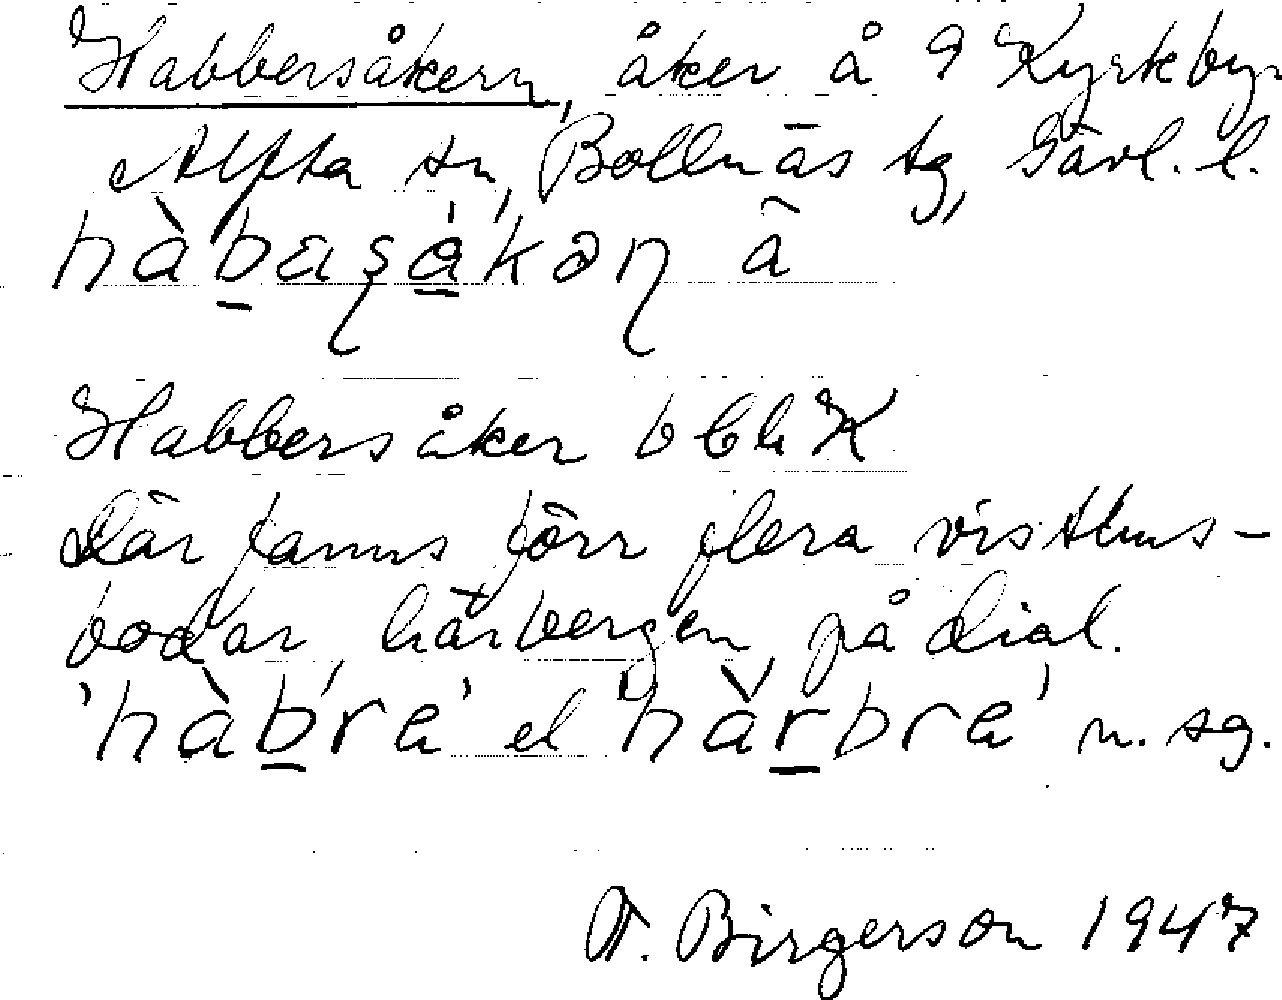 Habbersåkern, åker å 9 Kyrkbyn
Alfta sn, Bollnäs tg, Gävl. l.
hàbaʂåkəɳ ã
Habbersåker bbh K
Där fanns förr flera visthus-
bodar, härbergen, på dial.
'hàbre' el 'hàrbre' n. sg.
T. Birgerson 1947